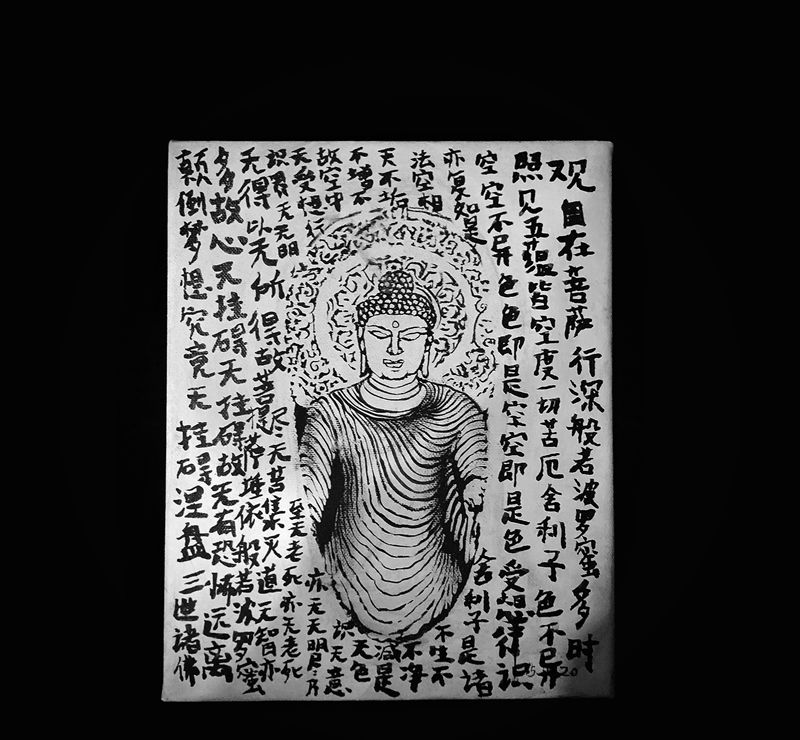 观自在菩萨行深般若波罗蜜多时
照见五蕴皆空度一切苦厄舍利子色不异
空空不异色色即是空空即是色受想行识
亦复如是
舍利子是诸
法空相
不生不
灭不垢
不净
不增不
减是
故空中
无色
无受想行
识无意
识界无无明
亦无无明尽乃
至无老死亦无老死
尽无苦集灭道无智亦
无得以无所得故菩提萨埵依般若波罗蜜
多故心无挂碍无挂碍故无有恐怖远离
颠倒梦想究竟无挂碍涅盘三世诸佛